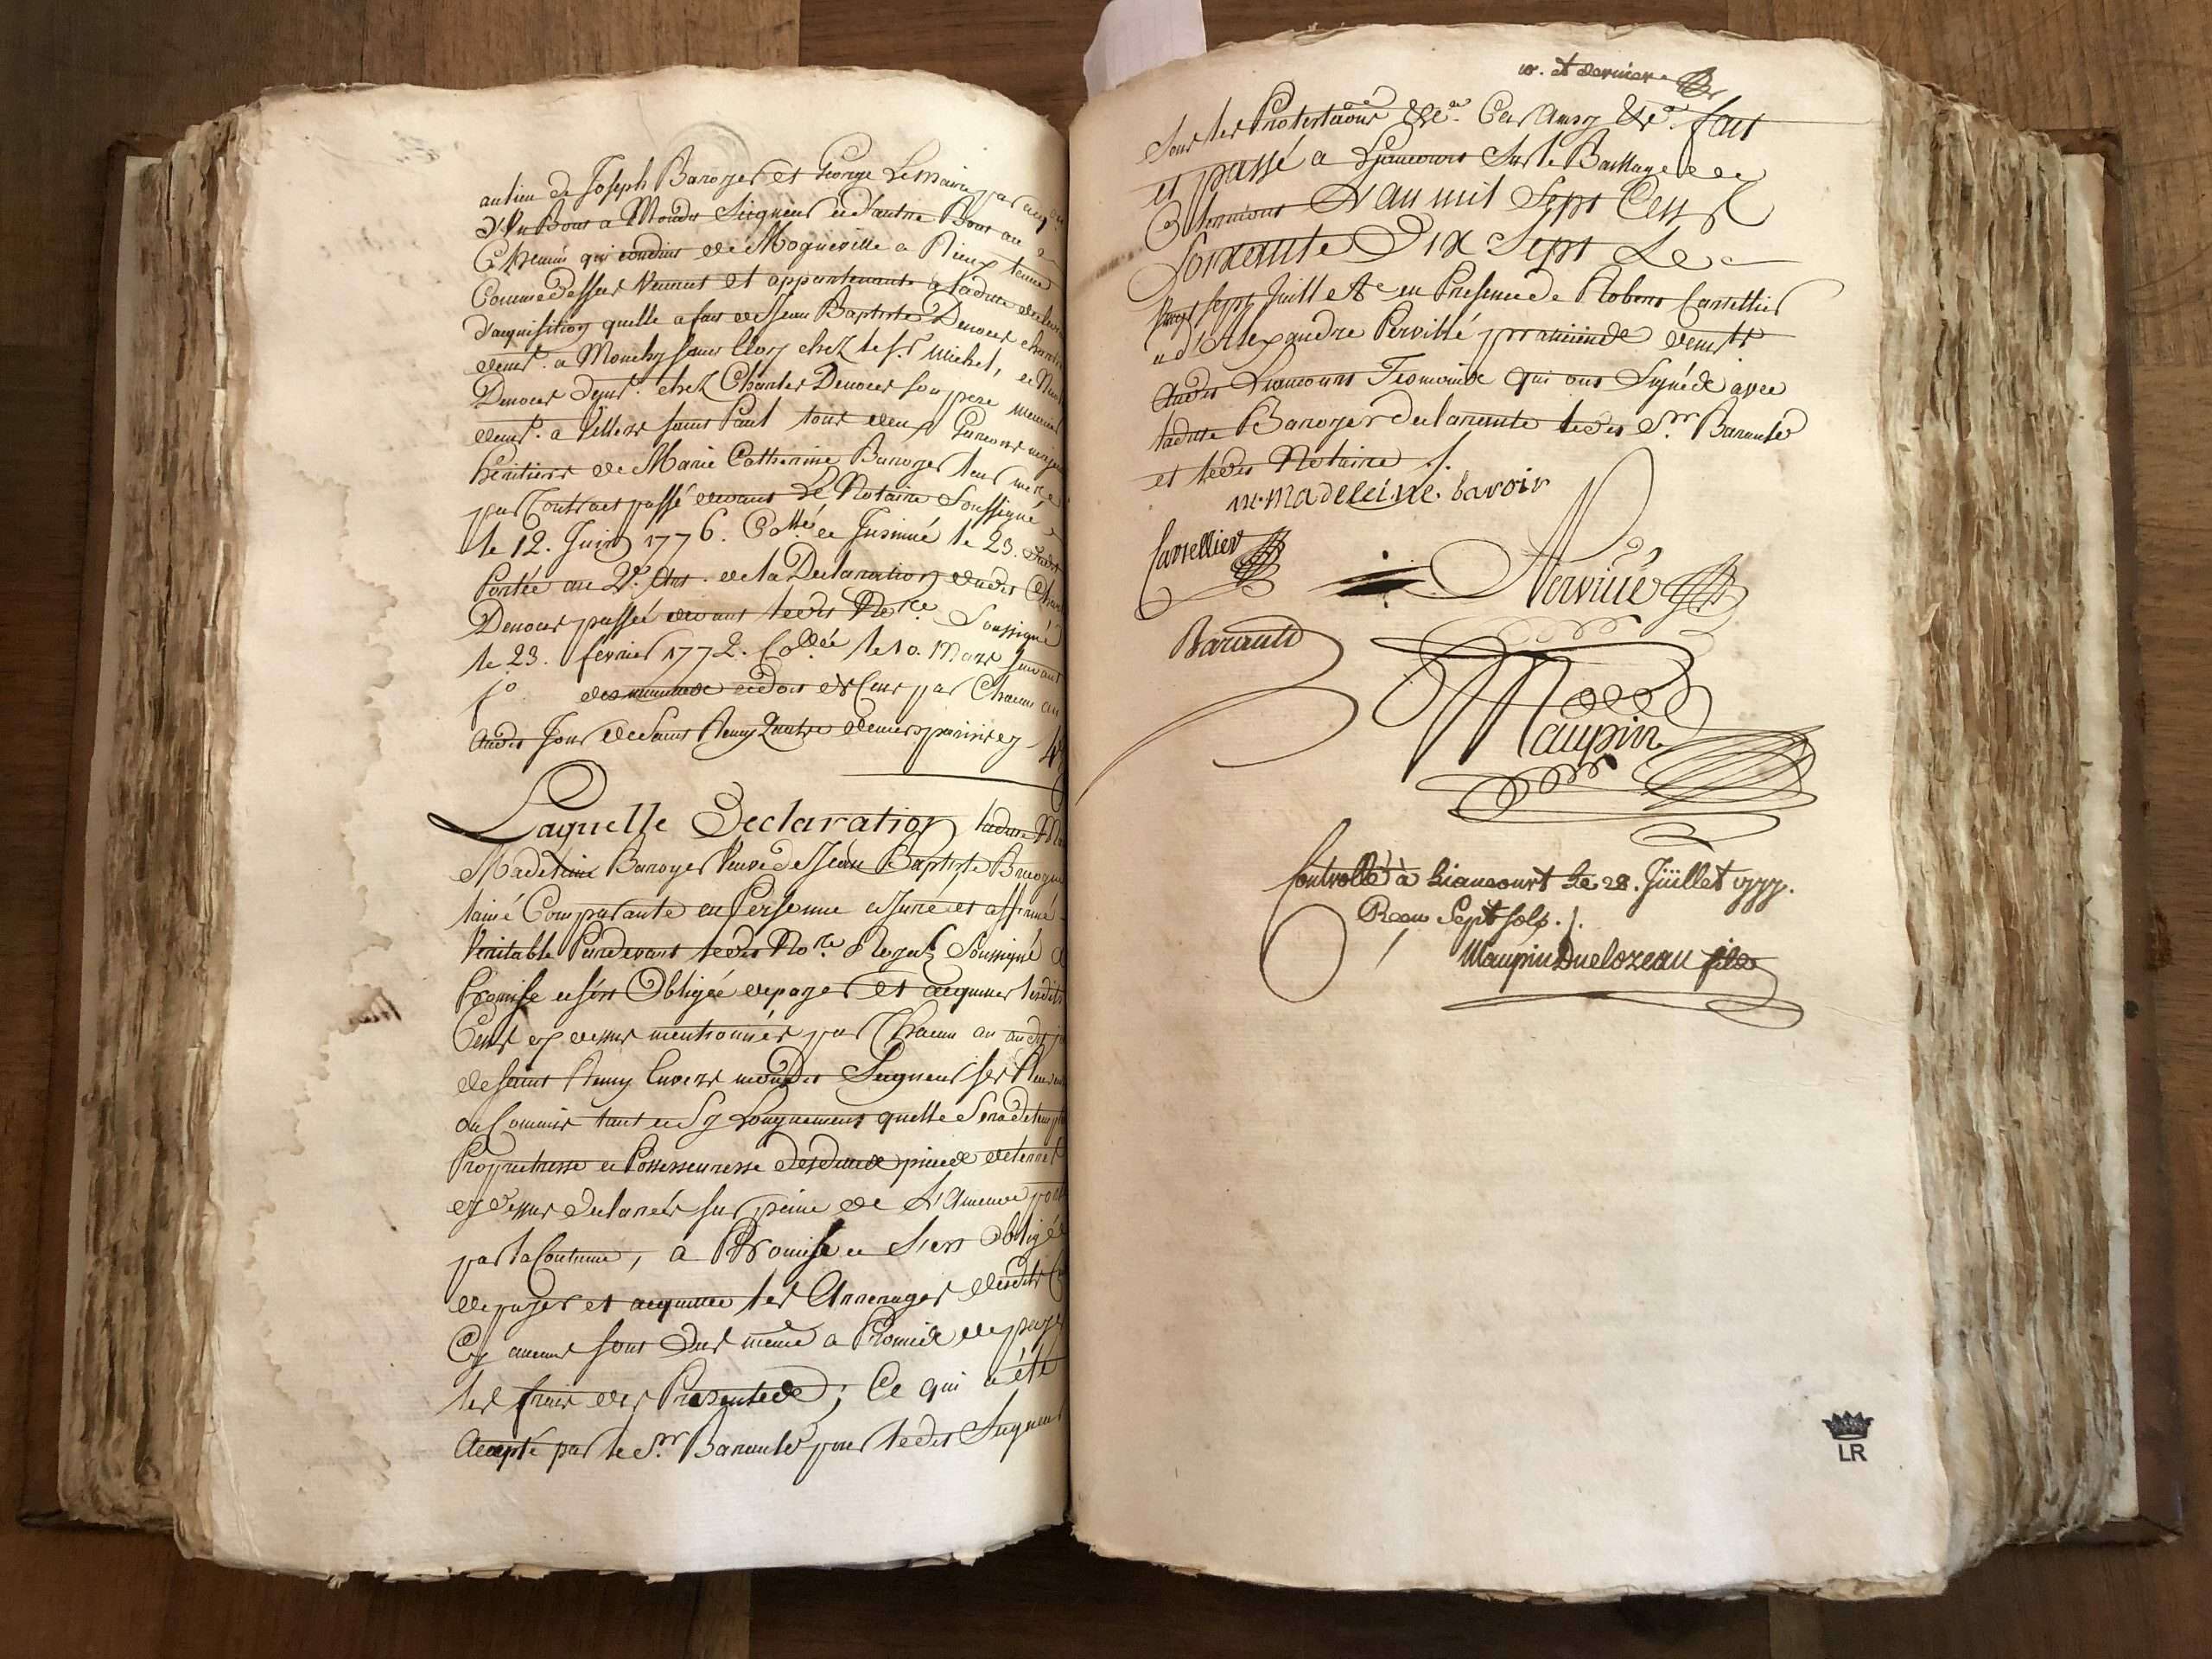 au lieu de Joseph Baroyer et George Lemaire par
d'Un Bout a Mondit Seigneur et d'autre Bout au
Chemin qui conduit de Mogneville a Rieux tenue
Comme dessus Venant et appartenante a ladite
d'acquisition quelle a fait de Jean Baptiste Denoeux
demt. a Monchy Saint Eloy chez le Sr. Michel, et
Denoeux demt. chez Charles Denoeux son pere
demt. a Villers saint Paul tous deux Garçons
heritiers de Marie Catherine Baroyer leur mere
par Contract passé devant Le Notaire Soussigné
le 12. Juin 1776. Collé et Insinué le 23.
Portée au 2e. Art. de la Declaration dudit
Denoeux passée devant ledit Nore. Soussigné
le 23. fevrier 1772. Collée le 10. Mars suivant
fo et doit de Cens par Chacun an
Audit Jour de Saint Remy Quatre deniers parisis cy 4
Laquelle Declaration ladite
Madeleine Baroyer Veuve de Jean Baptiste
lainé Comparante en Personne a Juré et affirmé
Veritable Pardevant ledit Nore. Royal Soussigné
Promise et s'est Obligée de payer et acquitter lesdits
Cens cy dessus mentionnés par Chacun an audit
de Saint Remy Envers mondit Seigneur ses
ou Commis tant et Sy Longuement quelle Sera
Proprietresse et Possesseuresse desdites pieces de terres
cy dessus declarées sur peine de L'Amende
par la Coutume, a Promise et s'est Obligée
de payer et acquitter les Arrerages desdits
Cy aucuns sont dus même a Promis de payer
les frais des Presentes; Ce qui a été
Accepté par le Sr. Barault pour ledit Seigneur
10. et derniere
Sous les Protestaons &ca. Car Ainsy &ca. fait
et passé a Liancourt Sur le Bailliage de
Clermont L'an mil Sept Cent
Soixante Dix Sept Le
Vingt sept Juillet en Presence de Robert Carrellier
et d'Alexandre Pervillé praticiens demts
Audit Liancourt Temoins qui ont Signés avec
ladite Baroyer declarante ledit Sr. Barault
et ledit Notaire /.
m. madeleine. baroir
Carrellier
Pervillé
Barault
Maupin
Controllé à Liancourt Le 28. Juillet 1777.
Recu Sept sols. /.
Maupin Duclozeau fils
LR